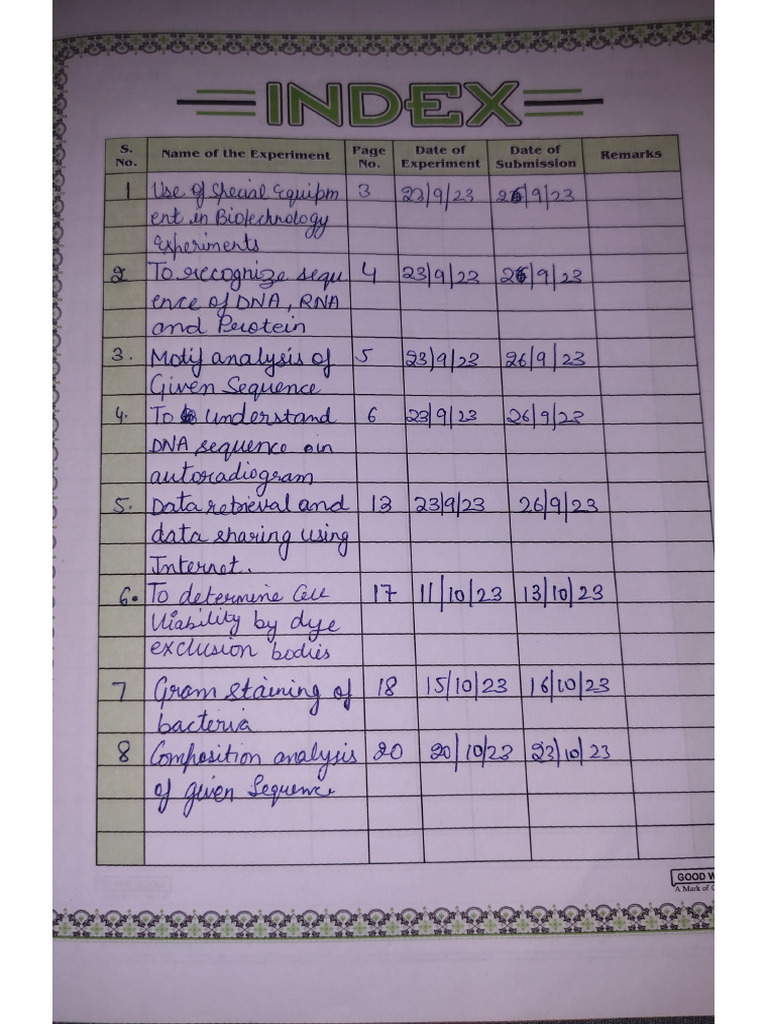 INDEX
S. No. Name of the Experiment Page No. Date of Experiment Date of Submission Remarks
1 Use of Special Equipm 3 23/9/23 26/9/23
ent in Biotechnology
Experiments
2 To recognize sequ 4 23/9/23 26/9/23
ence of DNA, RNA
and Protein
3. Motif analysis of 5 23/9/23 26/9/23
Given Sequence
4. To understand 6 23/9/23 26/9/23
DNA sequence in
autoradiogram
5. Data retrieval and 13 23/9/23 26/9/23
data sharing using
Internet.
6. To determine Cell 17 11/10/23 13/10/23
Viability by dye
exclusion bodies
7 Gram staining of 18 15/10/23 16/10/23
bacteria
8 Composition analysis 20 20/10/23 23/10/23
of given Sequence
GOOD
A Mark of